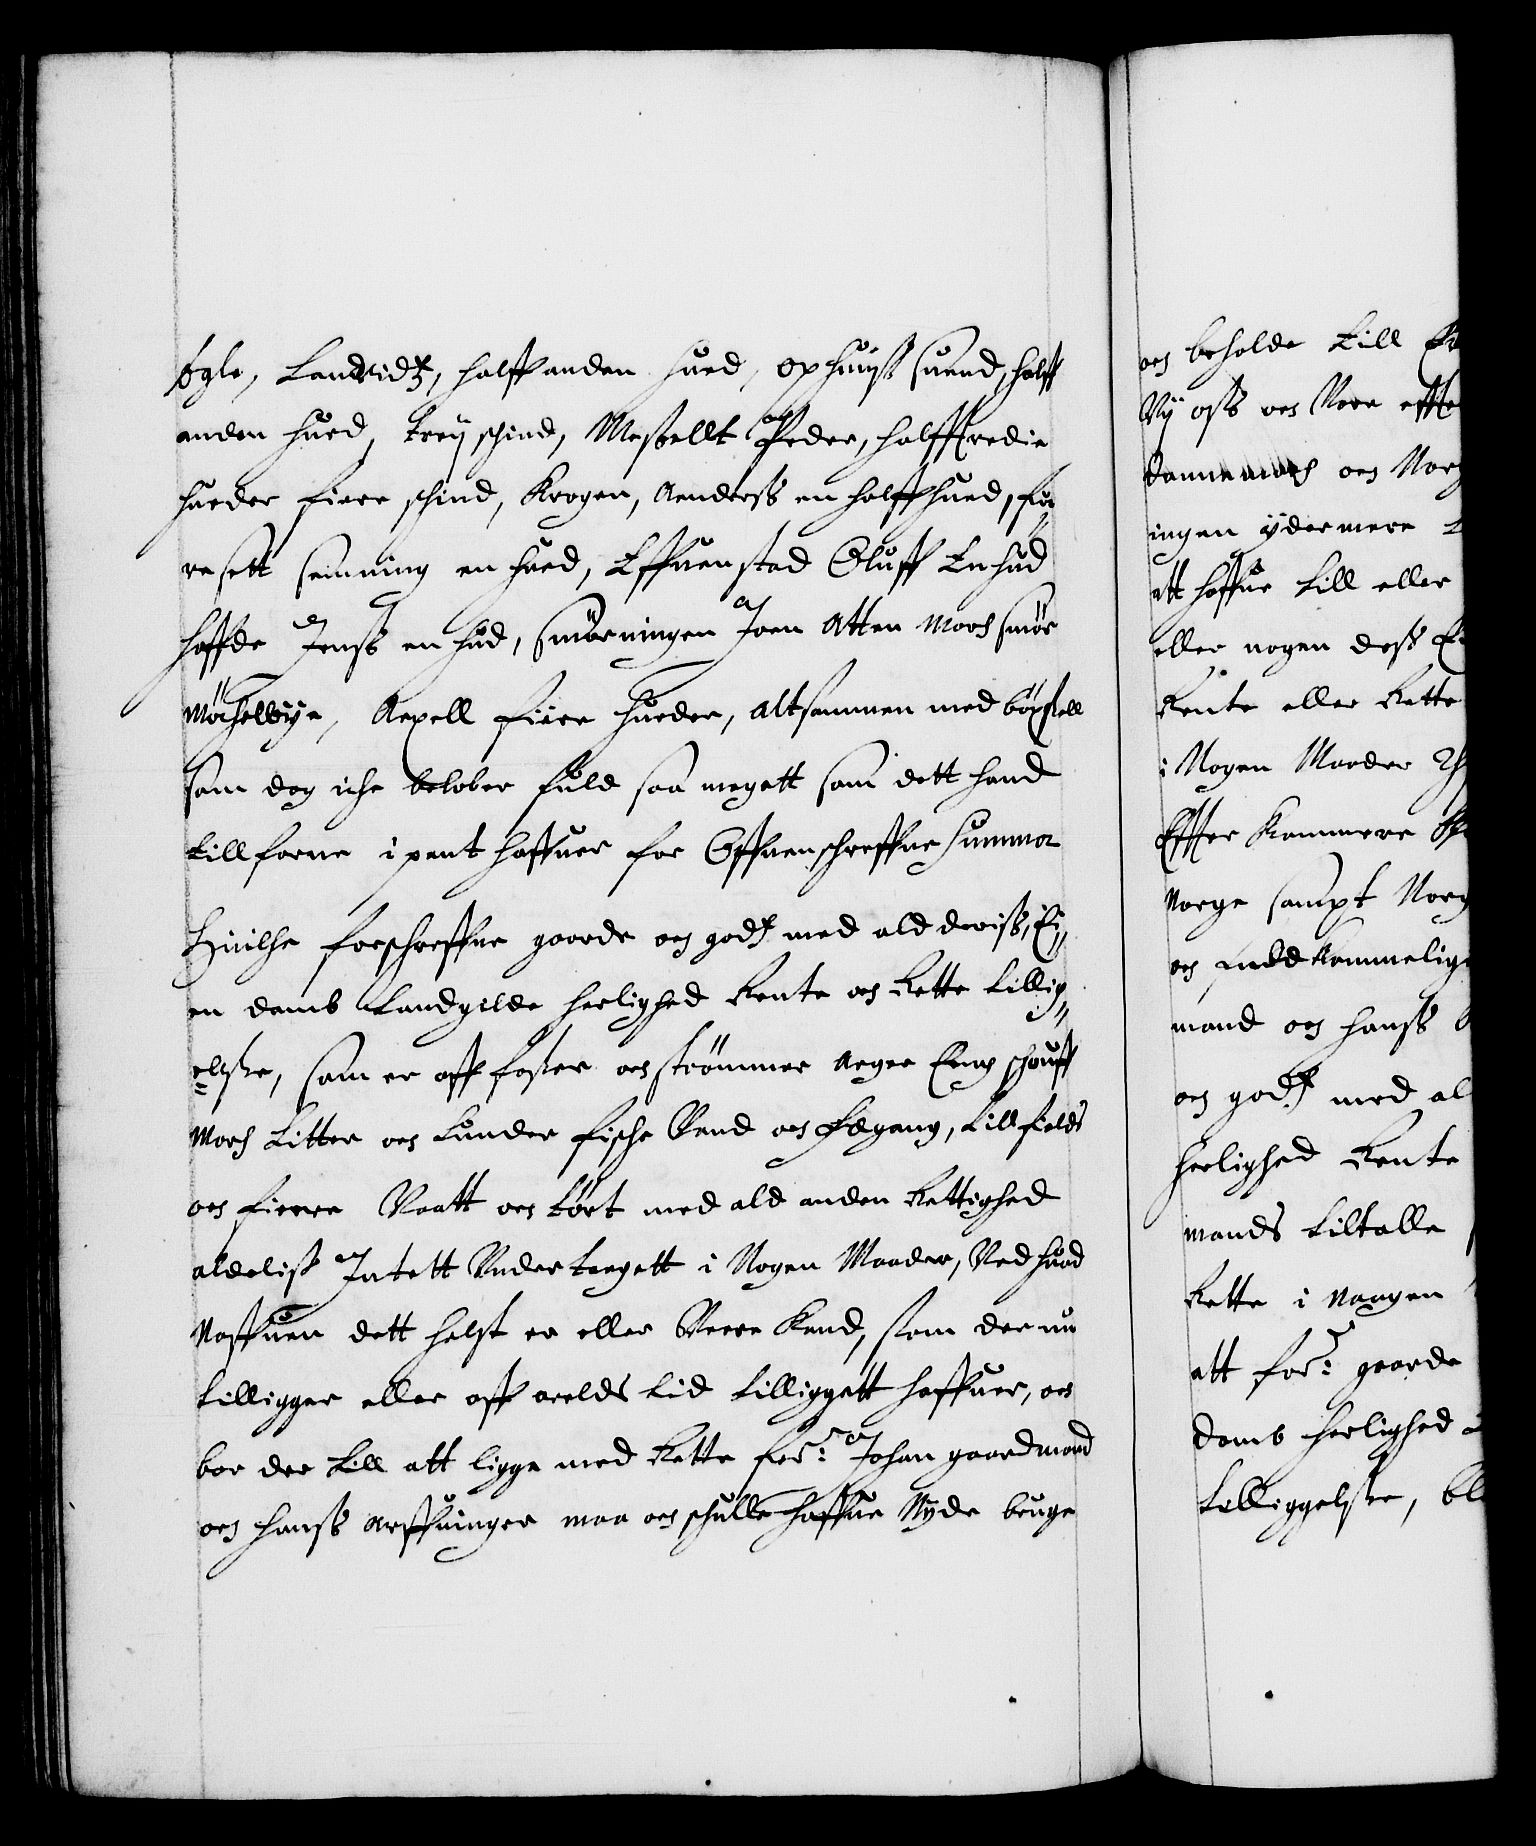 fogle, Landvidtz, halff anden hued, Ophuuß Suend, halff
anden hued, Treij schind, Meßellt Peder, halfftredie
hueder fiere schind, Krogen, Anderß en halff hued, fu
resett Henning en hued, Effuenstad Oluff En hud
Hoffde Jenß en hud, Smörningen Joen Atten March smör
Möchelbye, Axell fiire hueder, Altsammen med böxsell
Som dog iche beløber fuld saa megett som dett hand
tillforne i pant haffuer for Offuenschreffne Summa
Huilche forschreffne gaarde och godtz med ald deriß, Ei
en domb Landgilde herlighed Rente och Rette tillig
elsse, som er aff foßer och strömmer Ager Eng schouff
March Litter och Lunder fische Vand och Fægang, till fields
och fierre Vaatt och tört med ald anden Rettighed
aldeliß Intett Undertagett i Nogen Maader, Ved huad
Naffuen dett helst er eller Verre Kand, som der nu
tilligger eller aff arelds tid tilliggett haffuer, och
bør der till att ligge med Rette forne: Johan gaardmand
och hanß arffuinger maa och schulle haffue Nyde bruge
och beholde till
Vij oß och Vore effte
Dannemarch och Norg
ingen ÿdermere
att haffue till eller
eller nogen deß
Rente eller Rette
i Nogen Maader
Effter Kommere
Norge sampt Norg
och Inddkommelige
mand och hanß
och godtz med al
herlighed Rente
mands tiltalle
Rette i Naagen
att forne: gaarde
domb herlighed
tilliggelsse, bl